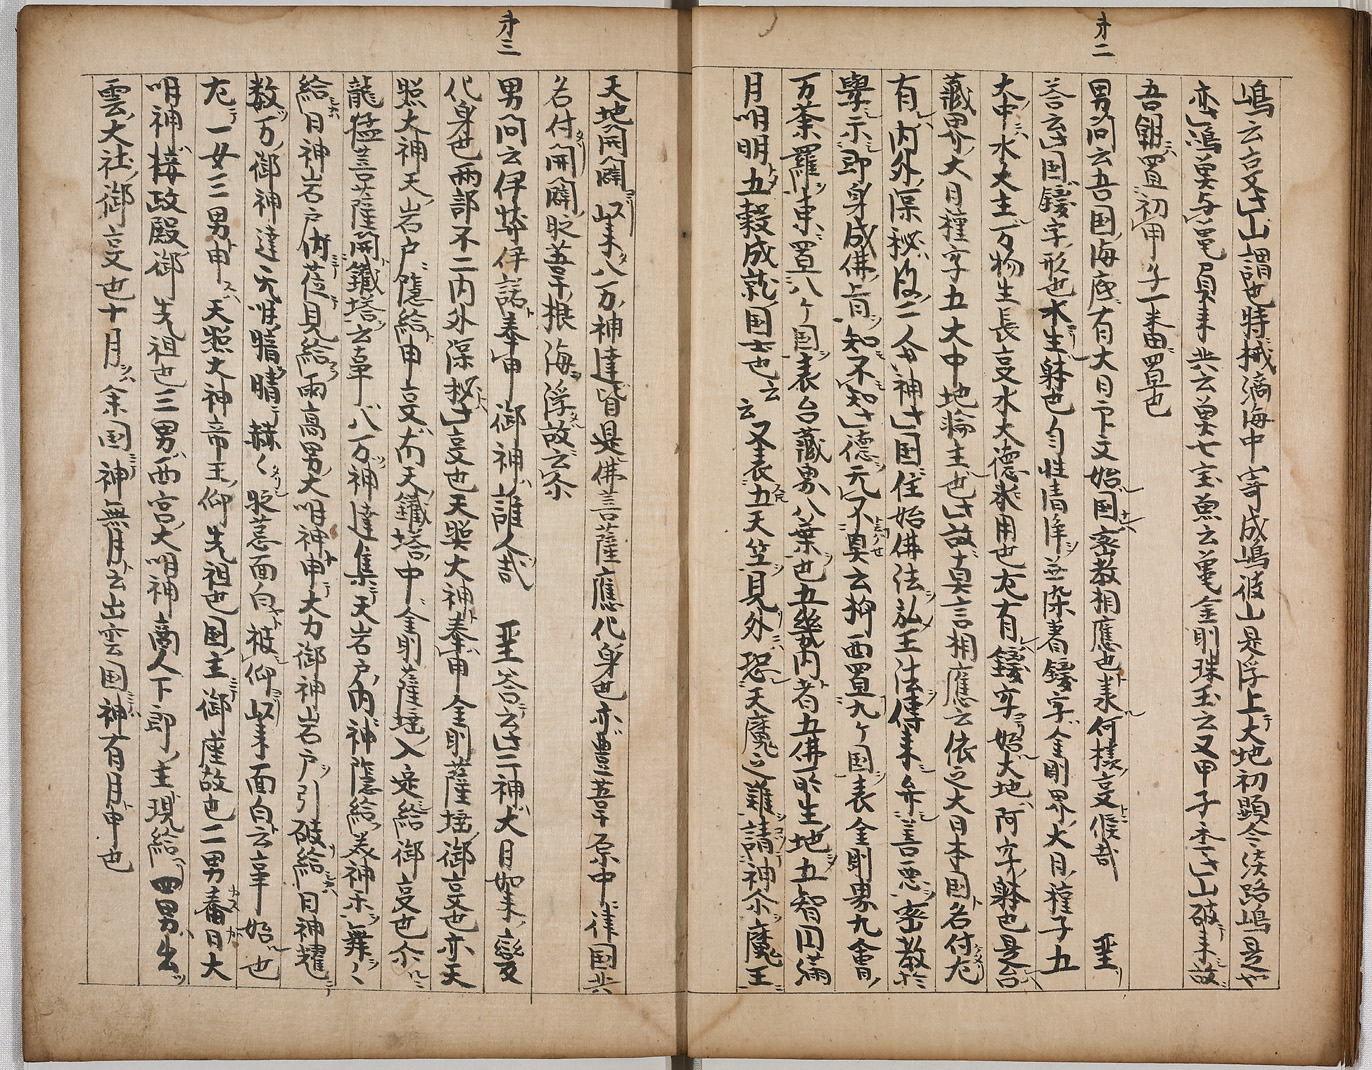 嶋云古文此山謂也特械滴海中寄成嶋彼山是浮上大地初顕今淡路嶋是也
亦鴻奥与亀負来共云奥七宝魚云亀金剛珠玉之又甲子木此山破来故
吾朝置初甲子一番置也
才二
男問云吾国海底有大日印文始国密教相應也来何様文候哉 聖
答云此国鑁字形也水生躰也自性清浄無染著鑁字金剛界大日種子五
大中水大主万物生長文水大徳義用也尤有鑁字始大地阿字躰也是台
蔵界大日種字五大中地輪主也此故真言相應云依之大日本国名付尤
有内外深秘沙二人神此国住始佛法弘王法傳来弁善悪密教於
學示即身成佛旨知不知此徳元不具云抑西置九ヶ国表金剛界九會
万荼羅東置八ヶ国表台蔵界八葉也五畿内者五佛所生地五智円満
月明明五穀成就国土也云云又表五天竺見外恐天魔之難請神尒魔王
天地開闢以来八万神達皆是佛菩薩應化身也亦豊葦原中津国共
名付開闢昵葦根海浮故云尒
才三
男問云伊弉伊諾奉申御神誰人哉 聖答云此二神大日如来變
化身也両部不二内外深秘此文也天照大神奉申金剛薩埵御文也亦天
照大神天岩戸隠給申文南天鐵塔中金剛薩埵入定給御文也尒
龍猛菩薩開鐵塔云事八万神達集天岩戸内神隠給表神示舞々
給日神岩戸内莅見給両高男大明神申大力御神岩戸引破給日神耀
数万御神達元明暗晴赫々照衆面白被仰以来面白云事始也
尤一女三男申天照大神帝王仰先祖也国主御座故也二男春日大
明神接政殿御先祖也三男西宮大明神商人下郎主現給四男出
雲大社御文也十月余国神無月云出雲国神有月申也